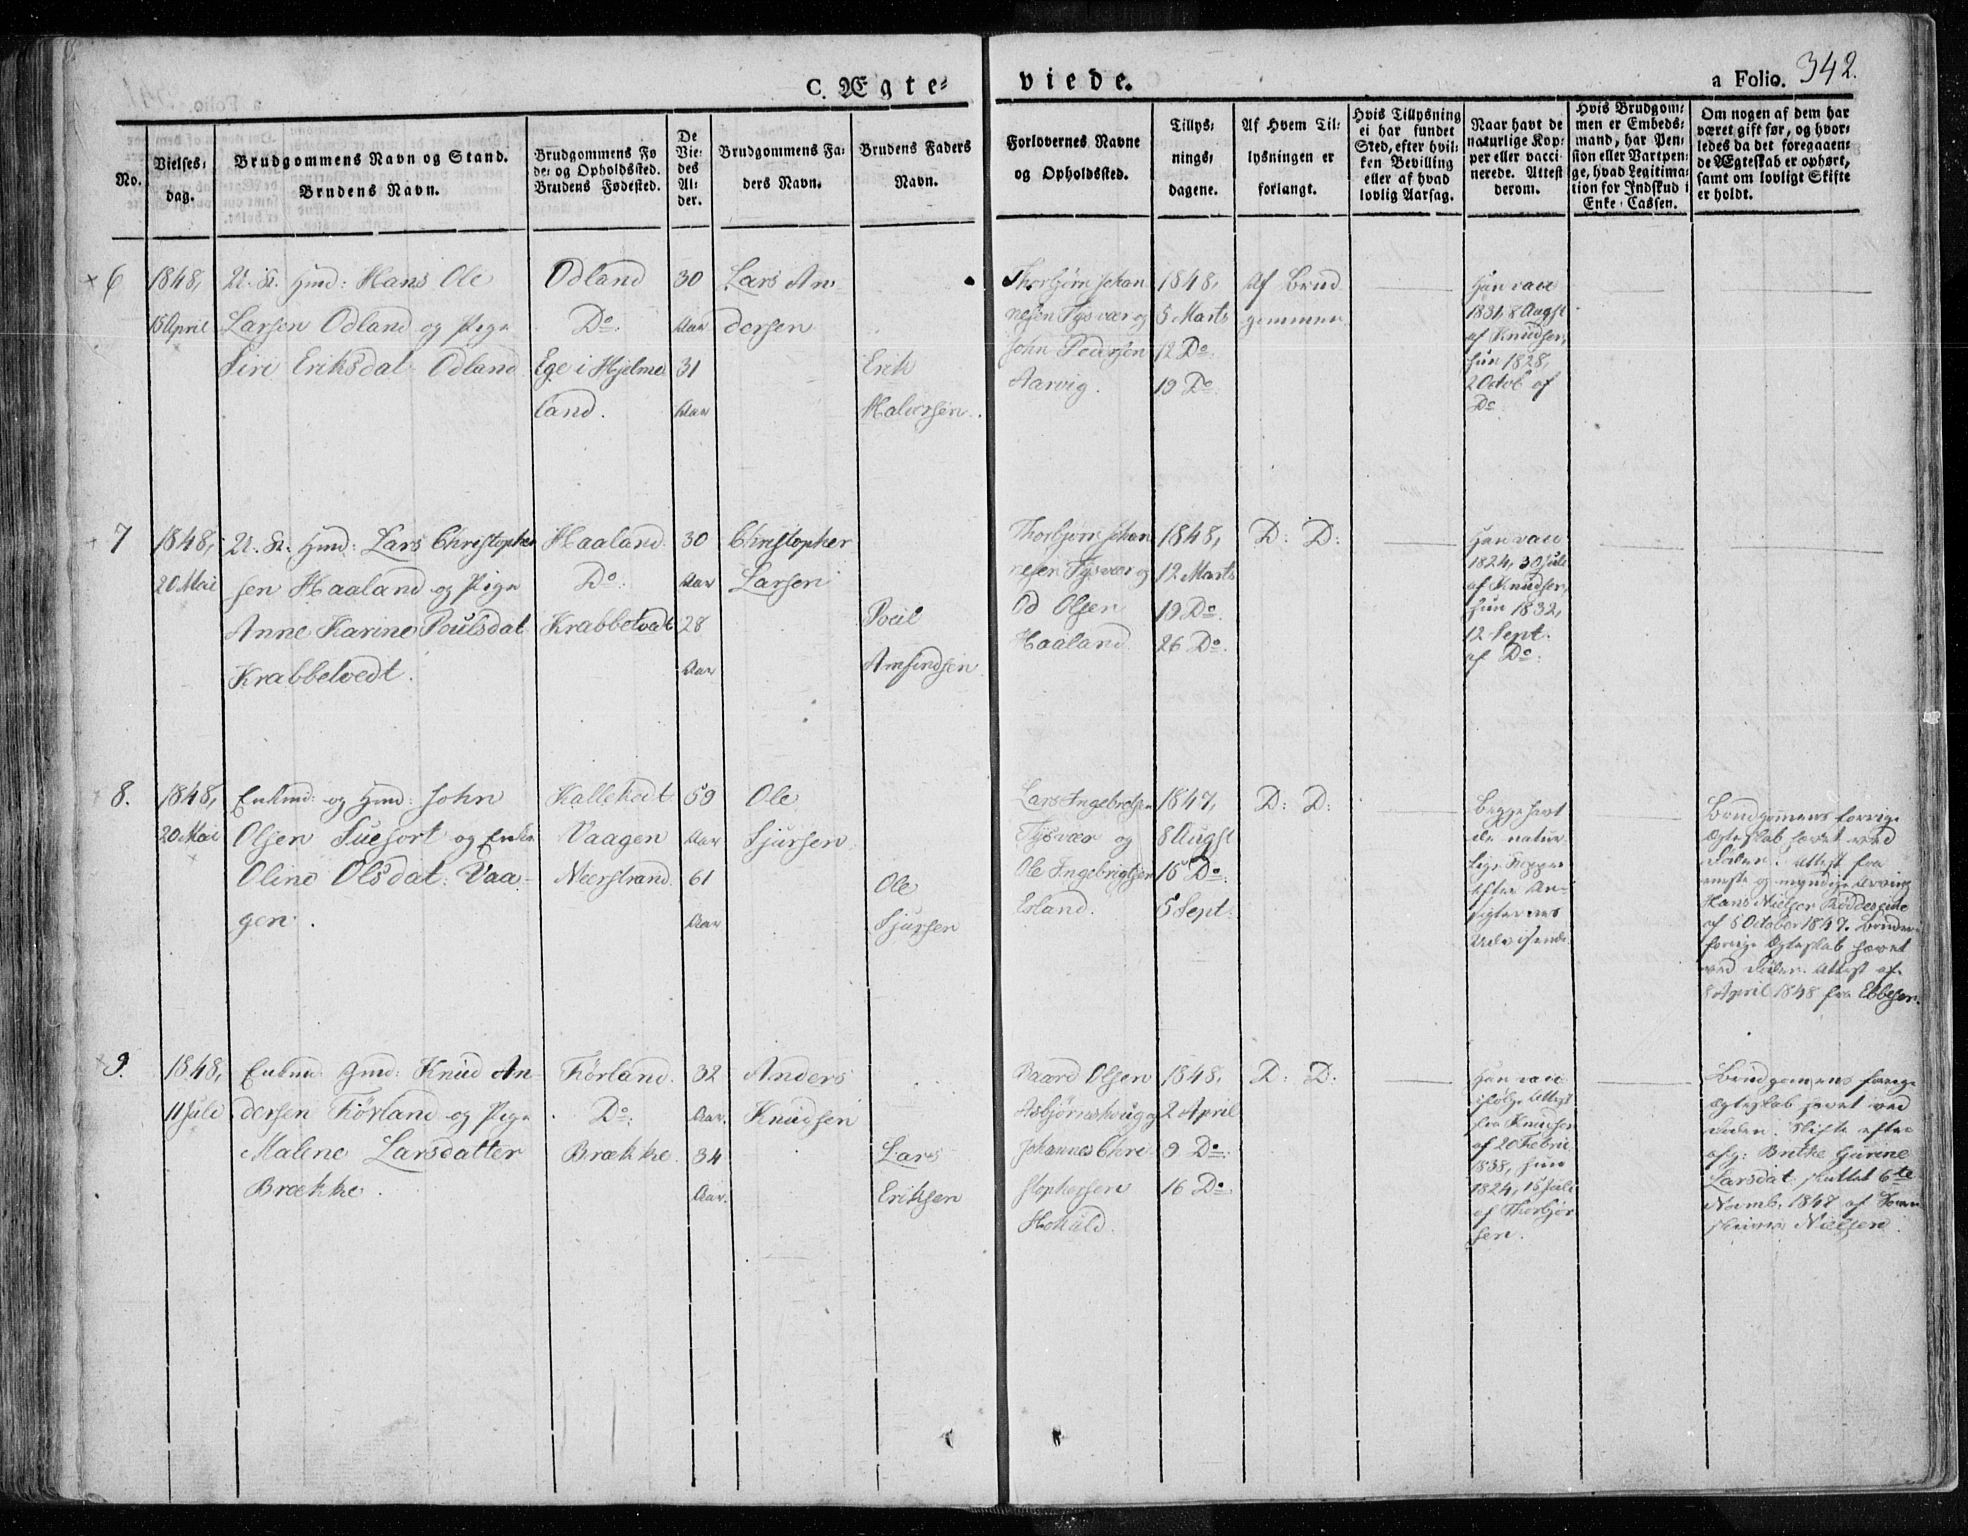 C. Ægte-
viede.
a Folio. 342.
No.
Vielses-
dag.
Brudgommens Navn og Stand.
Brudens Navn.
Brudgommens Fø
de- og Opholdssted.
Brudens Fødested.
De
Vie-
des
Al-
der.
Brudgommens Fa-
ders Navn.
Brudens Faders
Navn.
Forlovernes Navne
og Opholdssted.
Tillys-
nings-
dagene.
Af Hvem Til-
lysningen er
forlangt.
Hvis Tillysning
ei har fundet
Sted, efter hvil-
ken Bevilling
eller af hvad
lovlig Aarsag.
Naar havt de
naturlige Kop-
per eller vacci-
nerede. Attest
derom.
Hvis Brudgom-
men er Embeds-
mand, har Pen-
sion eller Vartpen-
ge, hvad Legitima-
tion for Indskud i
Enke-Cassen.
Om nogen af dem har
været gift før, og hvor-
ledes da det foregaaen-
de Ægteskab er ophørt,
samt om lovligt Skifte
er holdt.
6
1848,
15 April
Hans Ole
Larsen Odland og Pige
Siri Eriksdat. Odland
Odland
Do.
Ege i Hjelme
land.
30
Aar
31
Aar
Lars An
dersen
Erik
Halversen.
Thorbjørn Johan
nesen Tysvær og
John Pedersen
Aarvig.
1848,
5 Marts
12 Do.
19 Do
Af Brud
gommen
Han vacc
1831, 8 Augst
af Knudsen,
hun 1828,
2 Octob af
Do
7
1848,
20 Mai
Lars Christopher
sen Haaland og Pige
Anne Karine Poulsdat
Krabbetvedt.
Haaland
Do.
Krabbetvedt
30
Aar
28
Aar
Christopher
Larsen
Poul
Amundsen
Thorbjørn Johan
nesen Tysvær og
Od Olsen
Haaland
1848,
12 Marts
19 Do.
26 Do.
D: D:
Han vacc
1824, 30 Juli
af Knudsen,
hun 1832,
12 Sept.
af Do.
8.
1848,
20 Mai
Enkmd: og Gmd: John
Olsen Suesort og Enke
Oline Olsdat. Vaa-
gen.
Kalletvedt
Vaagen
Neerstrand
59
Aar
61
Aar
Ole
Sjursen
Ole
Sjursen
Lars Ingebretsen
Tysvær og
Ole Ingebrigtsen
Esland.
1847,
8 Augst
15 Do.
5 Sept.
D: D:
Begge havt
de natur
lige Kopper
efter An-
sigternes
Udvisende
Brudgomens forrige
Ægteskab hævet ved
Døden. Attest fra
og myndige Arving
Hans Nielsen
af 8 October 1847. Brudens
forrige Ægteskab hævet
ved Døden. Attest af
8 April 1848 fra Ebbesen.
9.
1848,
11 Juli
Enkmd Gmd: Knud An-
dersen Førland og Pige
Malene Larsdatter
Brække.
Førland.
Do.
Brække.
32
Aar.
34
Aar.
Anders
Knudsen
Lars
Eriksen
Baard Olsen
Asbjørnshuug og
Johannes Chri
stophersen
Hetland.
1848,
2 April
9 Do.
16 Do.
D: D:
Han vacc
ifølge Attest
fra Knudsen
af 20 Febru
1838, hun
1824, 15 Juli
af Thorbjør
sen.
Brudgomens forrige
Ægteskab hævet ved
Døden. Skifte efter
afg: Brithe Gurine
Larsdat sluttet 6te
Novmb. 1847 af Soren
skriver Nielsen.